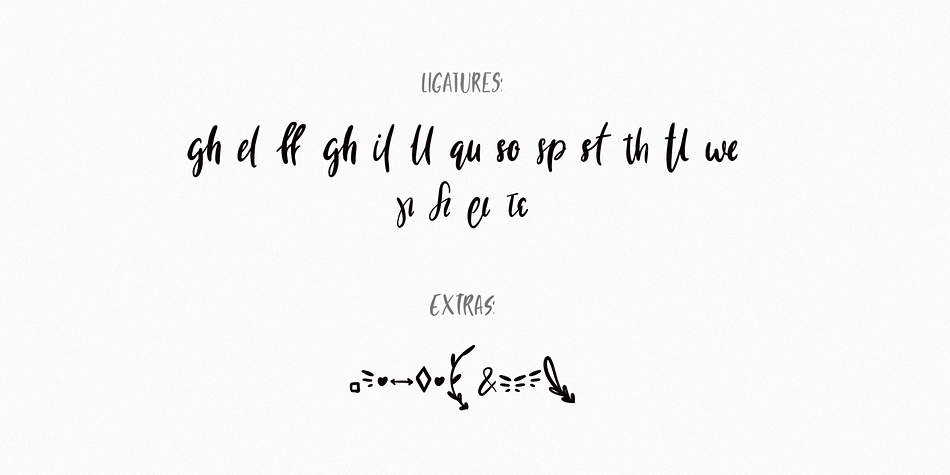 LIGATURES:
gh el ff gh il ll qu so sp st th tl we
γι δι ει τε
EXTRAS:
&